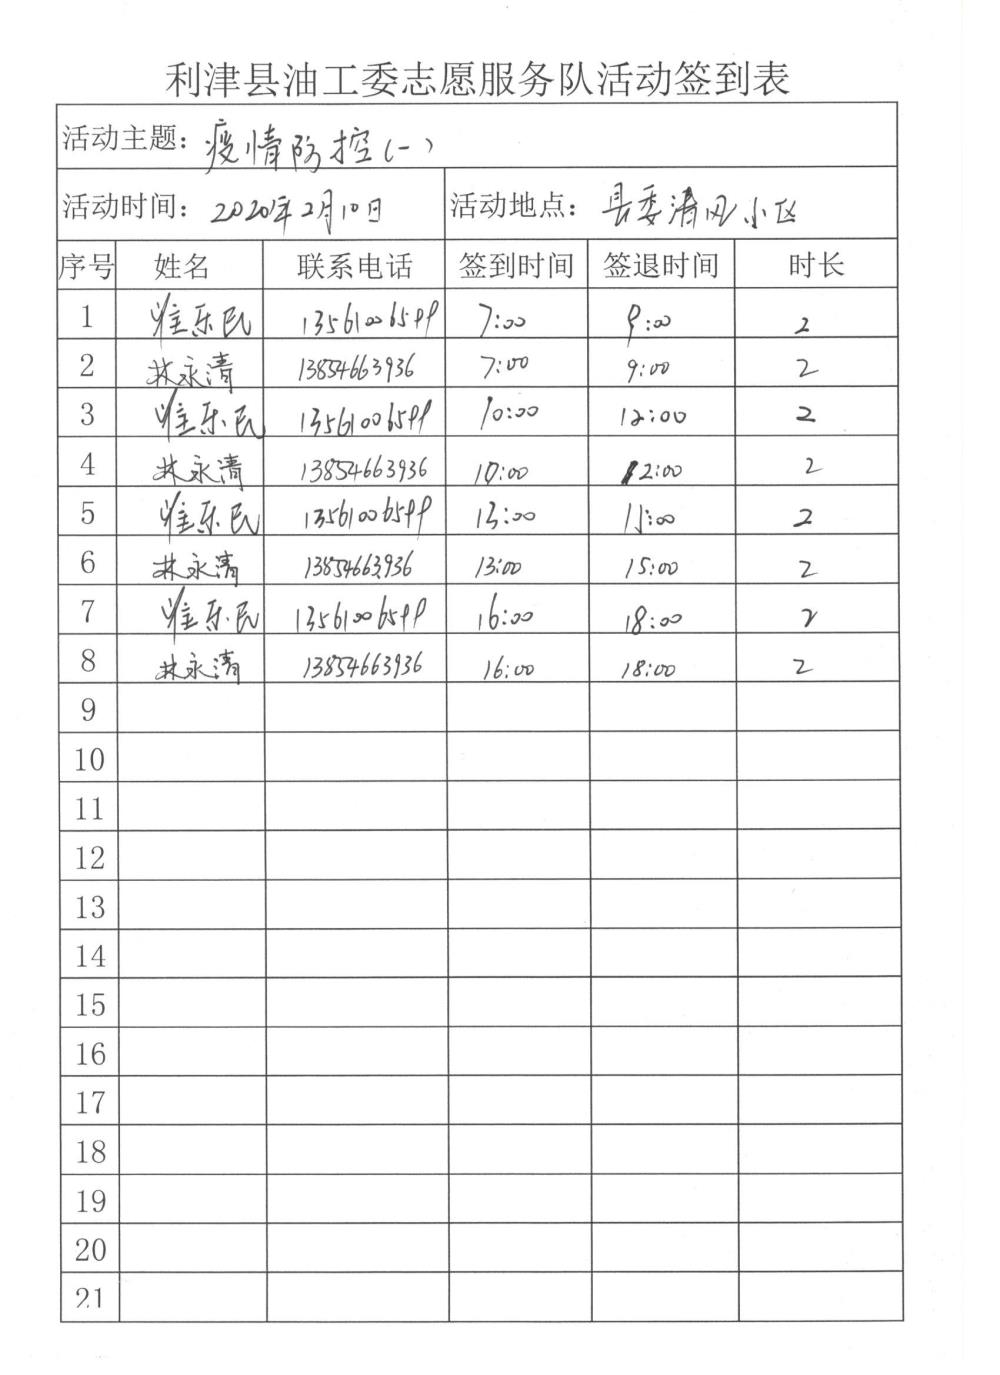 利津县油工委志愿服务队活动签到表
活动主题：疫情防控(一)
活动时间：2020年2月10日 活动地点：县委清风小区
序号 姓名 联系电话 签到时间 签退时间 时长
1 乐民 13561006599 7:00 9:00 2
2 林永清 13854663936 7:00 9:00 2
3 乐民 13561006599 10:00 12:00 2
4 林永清 13854663936 10:00 12:00 2
5 乐民 13561006599 13:00 15:00 2
6 林永清 13854663936 13:00 15:00 2
7 乐民 13561006599 16:00 18:00 2
8 林永清 13854663936 16:00 18:00 2
9
10
11
12
13
14
15
16
17
18
19
20
21